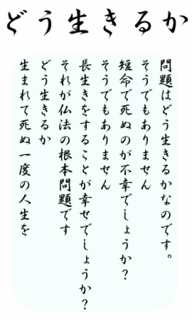 どう生きるか
問題はどう生きるかなのです。
そうでもありません
短命で死ぬのが不幸でしょうか？
そうでもありません
長生きをすることが幸せでしょうか？
それが仏法の根本問題です
どう生きるか
生まれて死ぬ一度の人生を